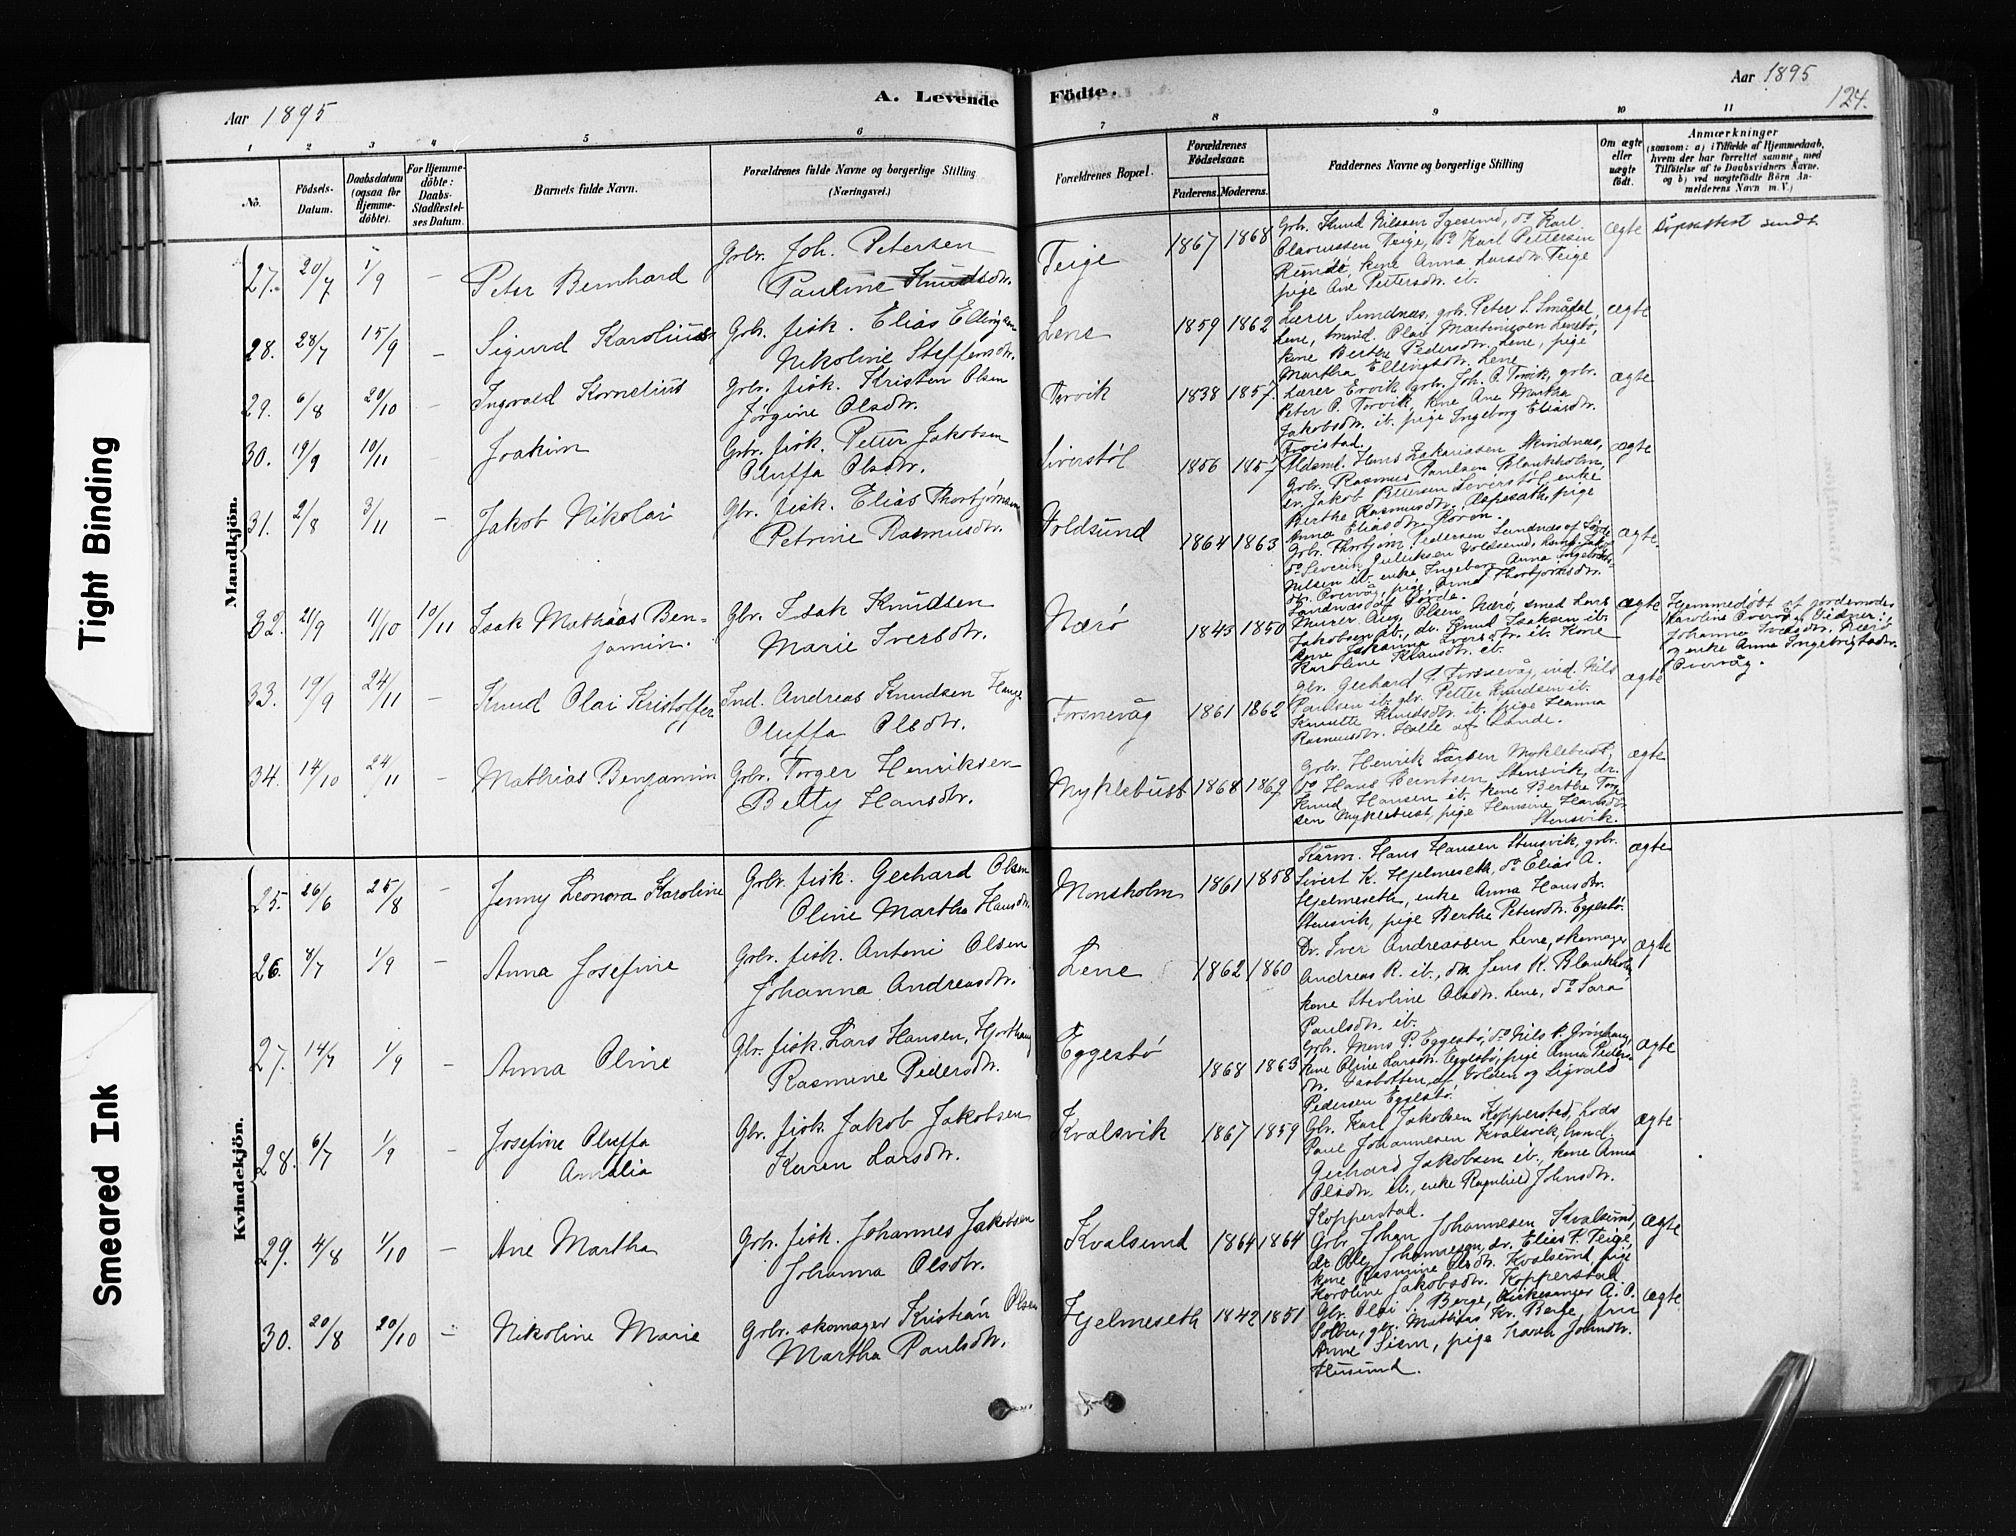 Tight Binding
Smeared Ink
Aar 1895
A. Levende
Födte.
Aar 1895
124.
1
2
3
4
5
6
7
8
9
10
11
No.
Födsels-
Datum.
Daabsdatum
(ogsaa for
Hjemme-
döbte).
For Hjemme-
döbte:
Daabs-
Stadfæstel-
ses Datum.
Barnets fulde Navn.
Forældrenes fulde Navne og borgerlige Stilling
(Næringsvei.)
Forældrenes Bopæl.
Forældrenes
Födselsaar.
Faderens.
Moderens.
Faddernes Navne og borgerlige Stilling
Om ægte
eller
uægte
födt.
Anmærkninger
(saasom: a) i Tilfælde af Hjemmedaab,
hvem der har forrettet samme, med
Tilföielse af to Daabsvidners Navne,
og b) ved uægtefödte Börn An-
melderens Navn m. V.)
Mandkjön.
27. 20/7 1/9 – Peter Bernhard
Gbr. Joh. Petersen
Pauline Knudsdtr.
Teige 1867 1868
Gbr. Knud Nilssen Igesund, do Karl
Olavussen Teige, do Karl Pettersen
Runde, kone Anna Larsdtr. Teige
pige Ane Pettersdtr. ib.
ægte
Dåpsattest sendt
28. 28/7 15/9 – Sigurd Karolius
Gbr. fisk. Elias Ellingsen
Nikoline Steffensdtr.
Lene 1859 1862
Lærer Sundnæs, gbr. Peter S. Smådal,
Lene, Olav Martinussen Lenebø,
kone Berthe Pedersdtr. Lene, pige
Martha Ellingsdtr. Lene
ægte
29. 6/8 20/10 – Ingvald Kornelius
Gbr. fisk. Kristen Olsen
Jørgine Olsdtr.
Torvik 1838 1857
Lærer Ervik, gbr. Joh. P. Torvik, gbr.
Peter P. Torvik, kone Ane Martha
Jakobsdtr. ib. pige Ingeborg Eliasdtr.
Frøistad.
ægte
30. 19/9 10/11 Joakim
Gbr. fisk. Petter Jakobsen
Oluffa Olsdtr.
Siverstøl 1856 1857
Hans Zakariassen Skindnæs,
Gbr. Rasmus Paulsen Blankholm,
dr. Jakob Pettersen Siverstøl, enke
Berthe Rasmusdtr. Aspesæth, pige
Anna Eliasdtr.
ægte
31. 2/8 3/11 – Jakob Nikolai
Gbr. fisk. Elias Thorbjørnsen
Petrine Rasmusdtr.
Voldsund 1864 1863
Gbr. Thorbjørn Pedersen Sandnæs af
do Severin Juliussen Voldsund,
Nilsen ib. enke Ingeborg Anna Ingebrigts-
dtr. Overvåg, pige Anna Thorbjørnsdtr.
Sandnæs af
ægte.
32. 21/9 11/10 10/11 Isak Mathias Ben-
jamin.
Gbr. Isak Knudsen
Marie Iversdtr.
Nærø 1843 1850
Murer Aug. Olsen Nærø, smed Lars
Jakobsen ib., dr. Knud Isaksen ib.
kone Johanna Iversdtr. ib. Kone
Karoline Klausdtr. ib.
ægte
Hjemmedøbt af jordemoder
Karoline Overvåg. Vidner:
Johanna Iversdtr. Nærø
og enke Anna Ingebrigtsdtr.
Overvåg.
33. 19/9 24/11 – Knud Olai Kristoffer
Ind. Andreas Knudsen Hauge
Oluffa Olsdtr.
Fosnevåg 1861 1862
Gbr. Gerhard P. Fosnevåg, ind. Nils
Paulsen ib. gbr. Petter Knudsen ib.
Knudsdtr. ib. pige Hanna
Rasmusdtr. Halle af Sande.
ægte
34. 14/10 24/11 – Mathias Benjamin
Gbr. Torger Henriksen
Betty Hansdtr.
Myklebust 1868 1869
Gbr. Henrik Larsen Myklebust,
do Hans Berntsen Stensvik, dr.
Knud Hansen ib. kone Berthe Torge
sen Myklebust, pige Hansine Hansdtr.
Stensvik.
ægte
Kvindekjön.
25. 26/6 25/8 – Jenny Leonora Karoline
Gbr. fisk. Gerhard Olsen
Oline Martha Hansdtr.
Monsholm 1861 1858
Hans Hansen Stensvik, gbr.
Sivert K. Hjelmeseth, do Elias A.
Hjelmeseth, enke Anna Hansdtr.
Stensvik, pige Berthe Petersdtr. Eggesbø.
ægte
26. 8/7 1/9 – Anna Josefine
Gbr. fisk. Antoni Olsen
Johanna Andreasdtr.
Lene 1862 1860
Dr. Iver Andreassen Lene, skomager
Andreas R. ib., dr. Jens K. Blankholm,
kone Stevline Olsdtr. Lene, do Sara
Paulsdtr. ib.
ægte
27. 14/7 1/9 – Anna Oline
Gbr. fisk. Lars Hansen, Hjorthaug
Rasmine Pedersdtr.
Eggesbø 1868 1863
Gbr. Mons P. Eggesbø, do Nils P. Grønhaug,
kone Oline Larsdtr. Eggesbø, pige Anna Peders-
dtr. af Volden og Sigvald
Pedersen Eggesbø
ægte
28. 6/7 1/9 – Josefine Oluffa
Amalia
Gbr. fisk. Jakob Jakobsen
Karen Larsdtr.
Kvalsvik 1867 1859
Gbr. Karl Jakobsen Kopperstad, Lods
Paul Johannesen Kvalsvik,
Gerhard Jakobsen ib., kone Anna
Olsdtr. ib., enke Ragnhild Johnsdtr.
Kopperstad.
ægte
29. 4/8 1/10 – Ane Martha
Gbr. fisk. Johannes Jakobsen
Johanna Olsdtr.
Kvalsund 1864 1864
Gbr. Johan Johannesen Kvalsund,
dr. Ole Johannesen, dr. Elias P. Teige,
kone Rasmine Olsdtr. Kvalsund, pige
Karoline Jakobsdtr. Kopperstad
ægte
30. 20/8 20/10 – Nikoline Marie
Gbr. skomager Kristian Olsen
Martha Paulsdtr.
Hjelmeseth 1842 1851
Gbr. Olai S. Berge, Kirkesanger A. O.
Solbu, gbr. Mathias Kr. Berge, fru
Anne Siem, pige Karen Johnsdtr.
Husund.
ægte